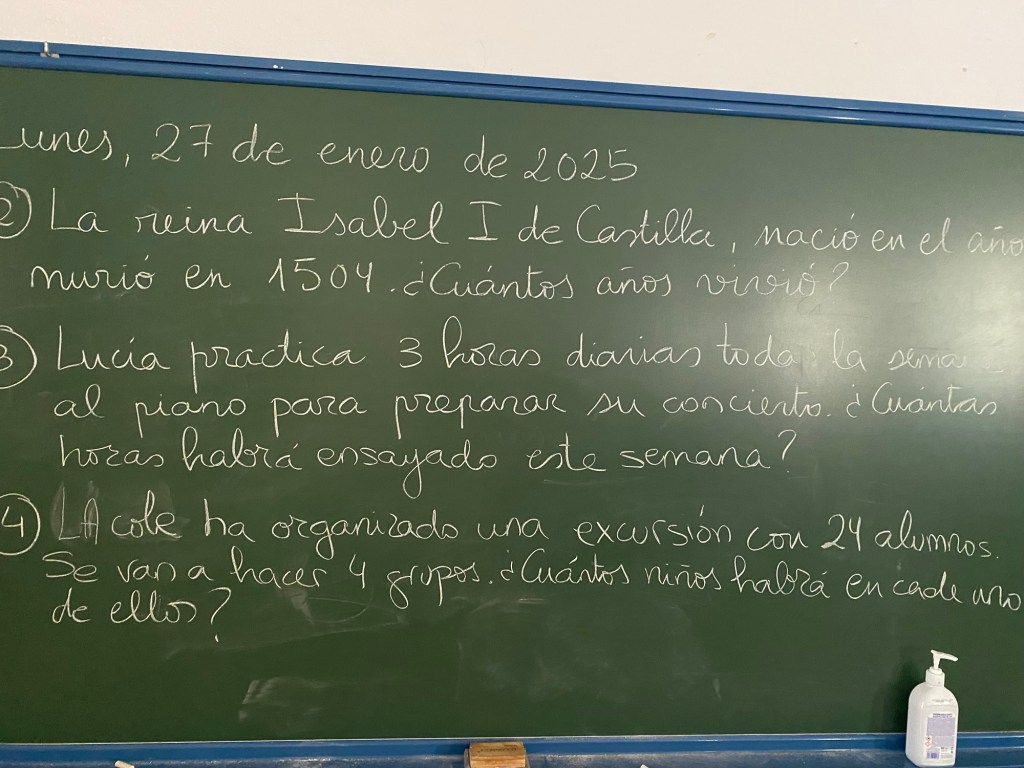 Lunes, 27 de enero de 2025
② La reina Isabel I de Castilla, nació en el año
murió en 1504. ¿Cuántos años vivió?
③ Lucía practica 3 horas diarias toda la sema
al piano para preparar su concierto. ¿Cuántas
horas habrá ensayado este semana?
④ LA cole ha organizado una excursión con 24 alumnos.
Se van a hacer 4 grupos. ¿Cuántos niños habrá en cade uno
de ellos?